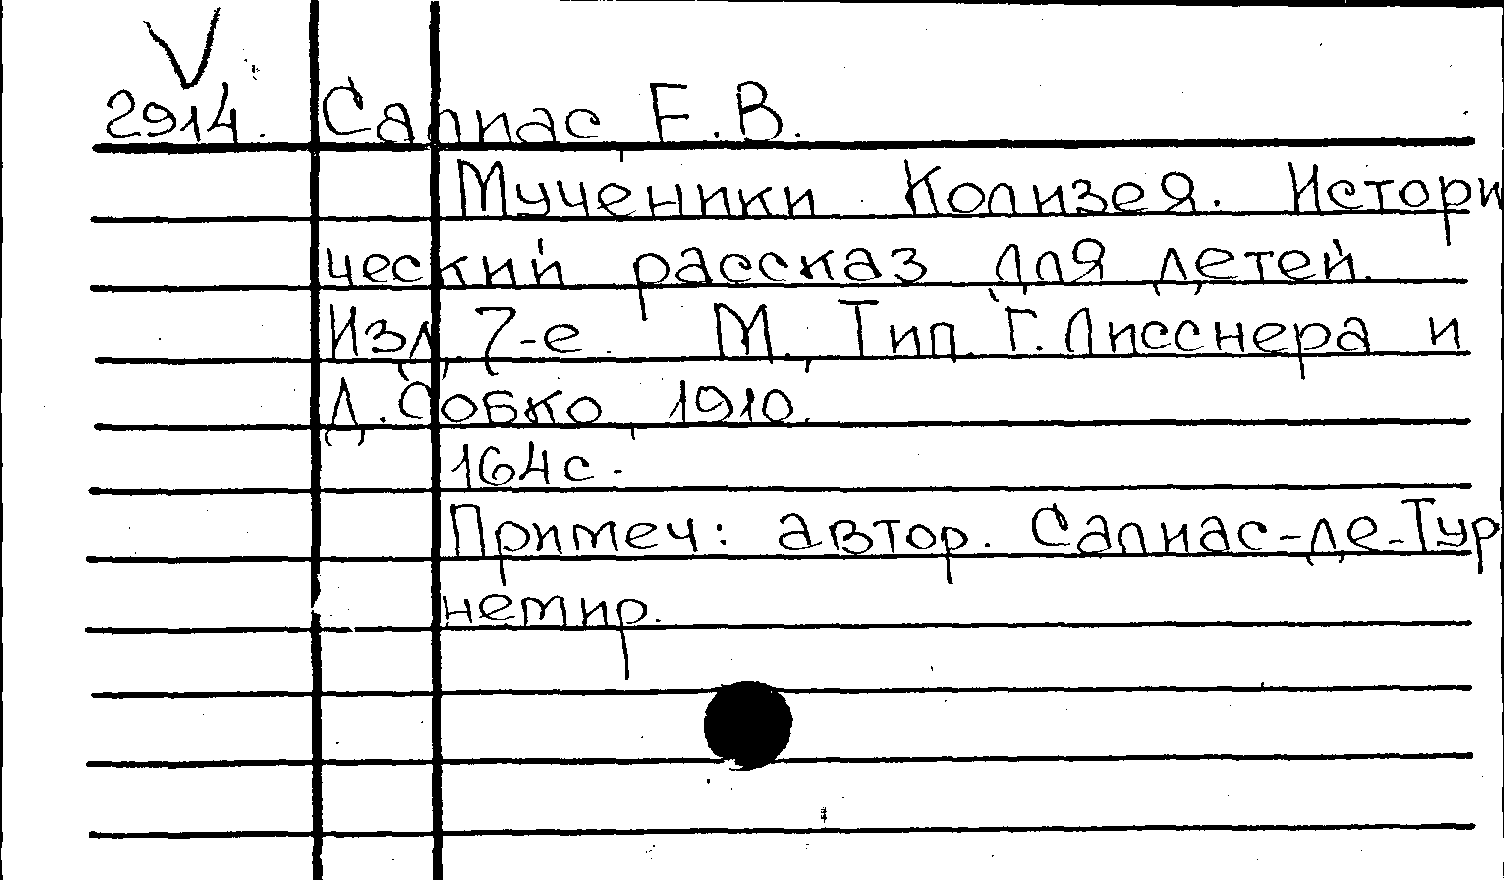 V
2914. Салиас Е.В.
Мученики Колизея. Истори
ческий рассказ для детей.
Изд. 7-е. М., Тип. Г. Лисснера и
Д. Собко, 1910.
164 с.
Примеч: автор. Салиас-де-Тур
немир.